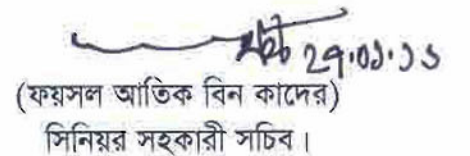 ২৭.০১.১১
(ফয়সল আতিক বিন কাদের)
সিনিয়র সহকারী সচিব।